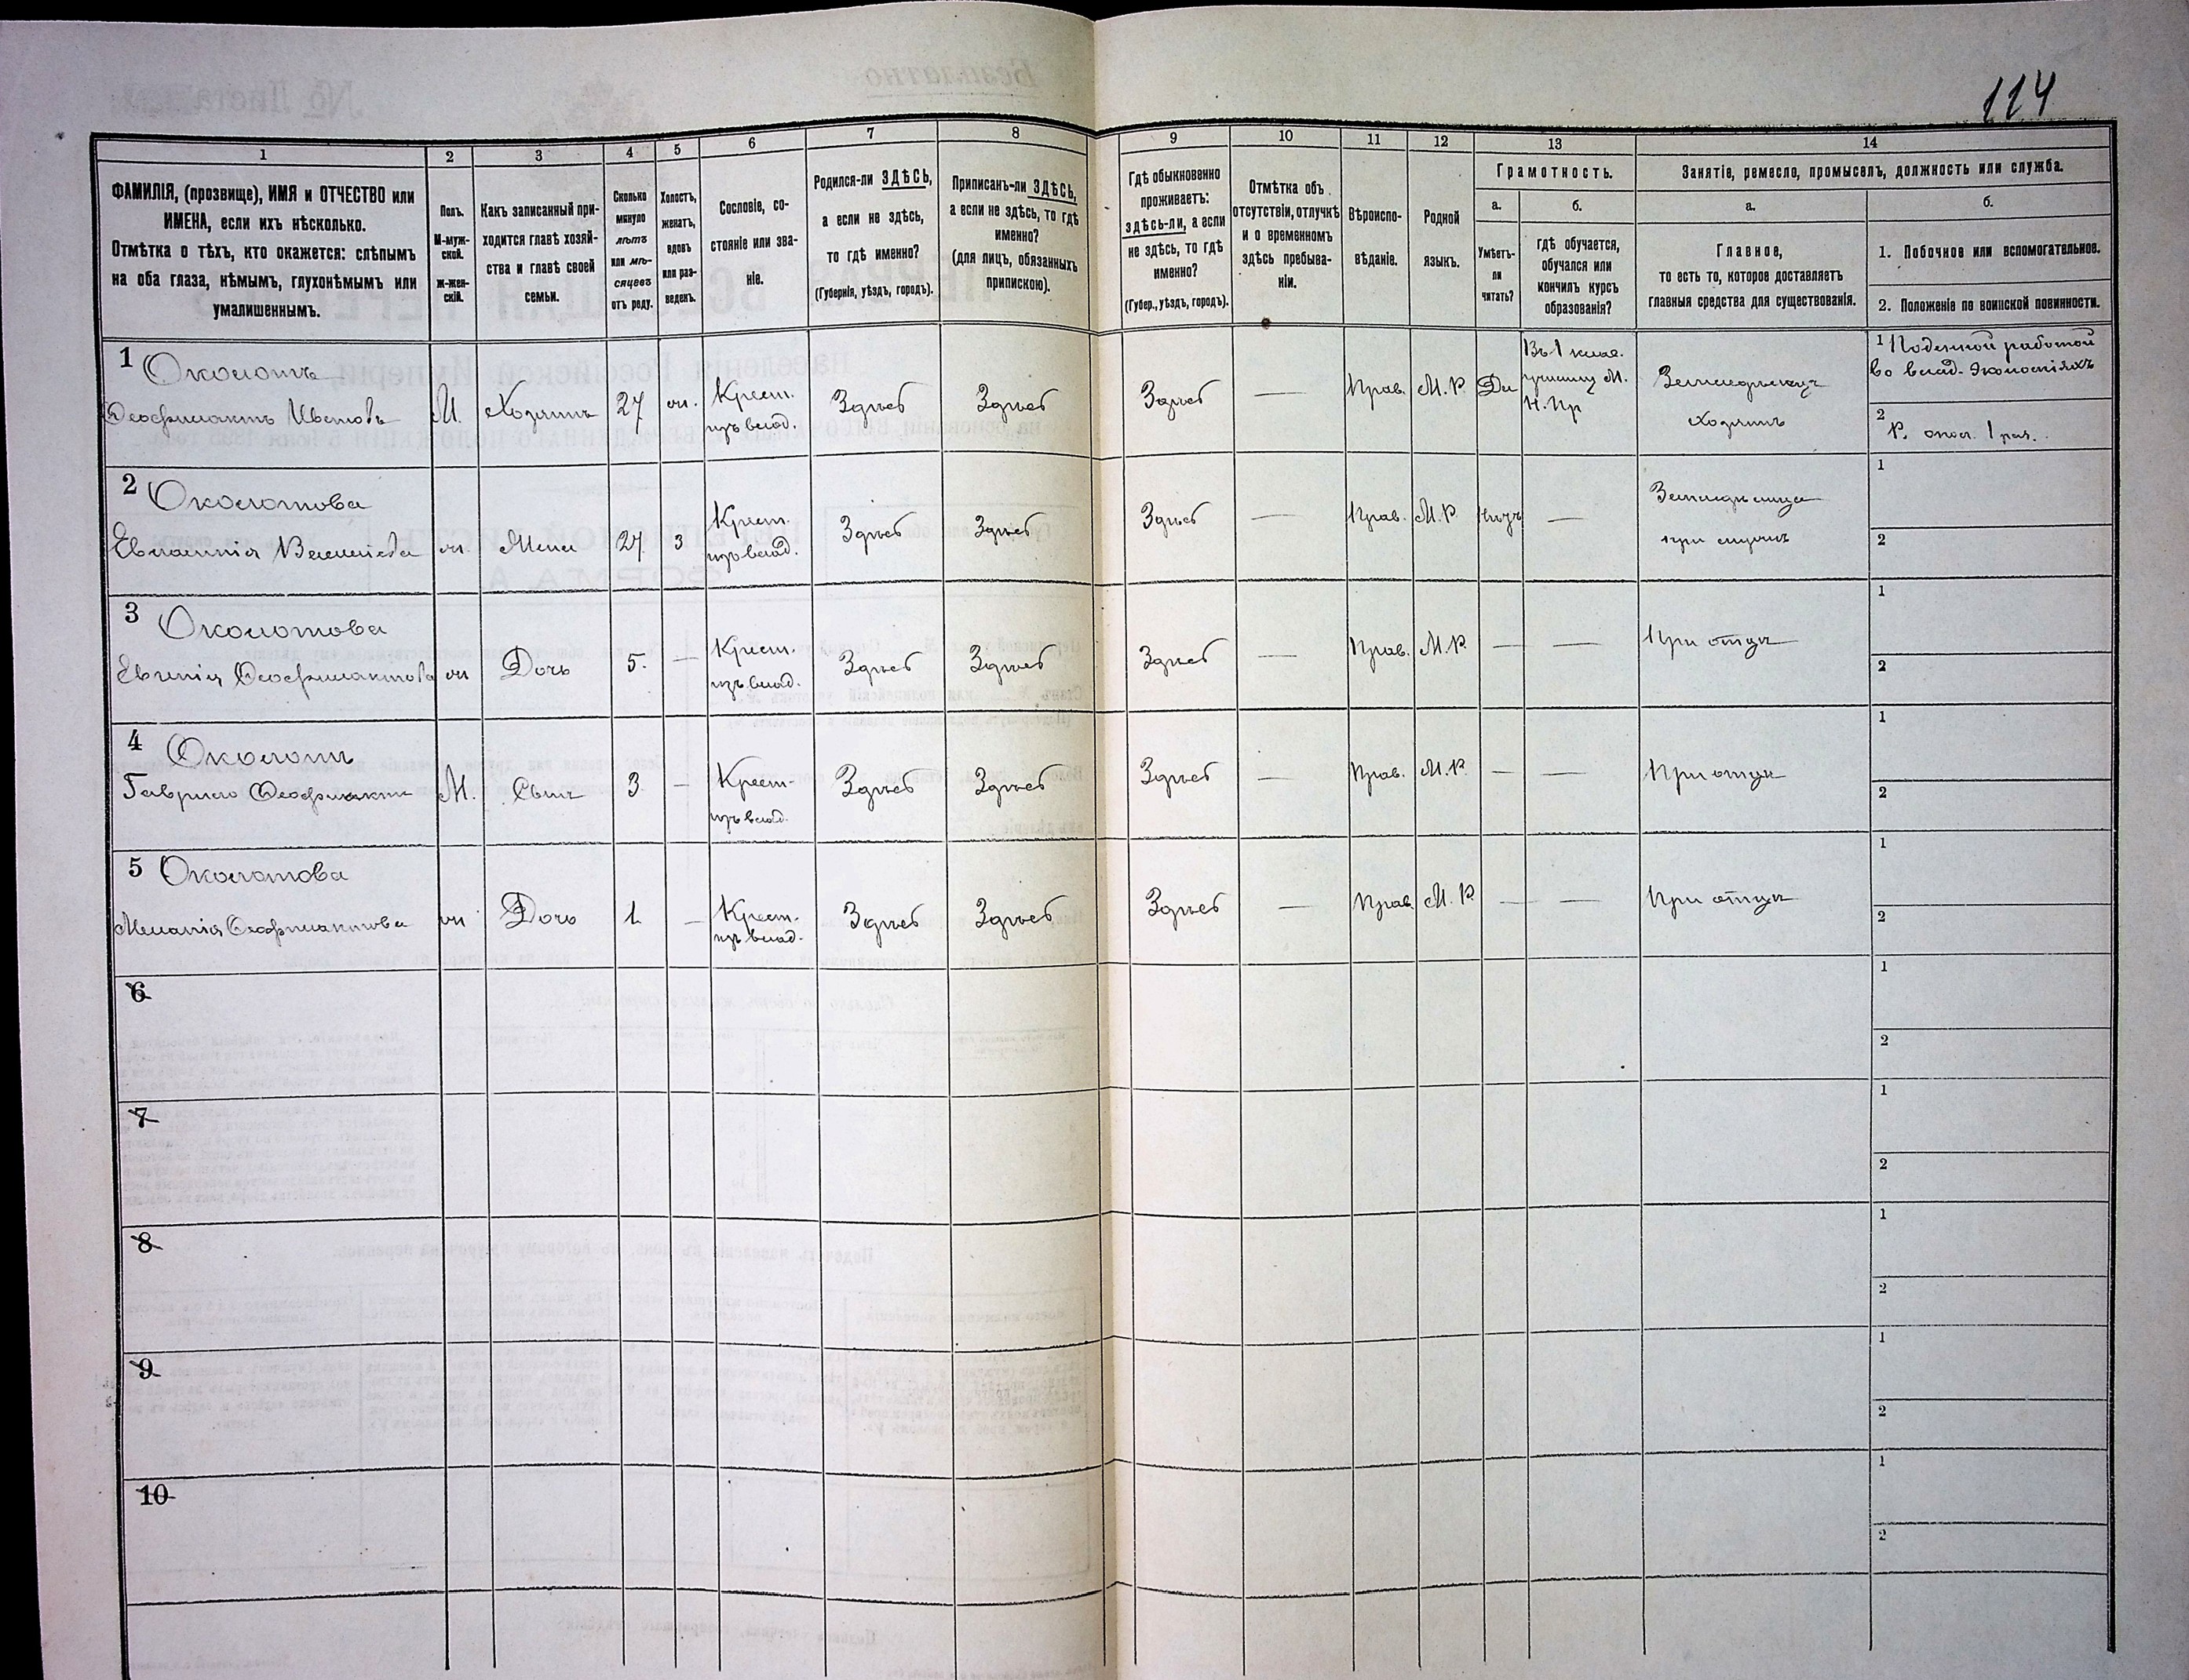 114
1 2 3 4 5 6 7 8 9 10 11 12 13 14
ФАМИЛІЯ, (прозвище), ИМЯ и ОТЧЕСТВО или
ИМЕНА, если ихъ нѣсколько.
Отмѣтка о тѣхъ, кто окажется: слѣпымъ
на оба глаза, нѣмымъ, глухонѣмымъ или
умалишеннымъ.
Полъ.
М-муж-
ской.
Ж-жен-
скій.
Какъ записанный при-
ходится главѣ хозяй-
ства и главѣ своей
семьи.
Сколько
минуло
лѣтъ
или мѣ-
сяцевъ
отъ роду.
Холостъ,
женатъ,
вдовъ
или раз-
веденъ.
Сословіе, со-
стояніе или зва-
ніе.
Родился-ли ЗДѢСЬ,
а если не здѣсь,
то гдѣ именно?
(Губернія, уѣздъ, городъ).
Приписанъ-ли ЗДѢСЬ,
а если не здѣсь, то гдѣ
именно?
(для лицъ, обязанныхъ
припискою).
Гдѣ обыкновенно
проживаетъ:
здѣсь-ли, а если
не здѣсь, то гдѣ
именно?
(Губер., уѣздъ, городъ).
Отмѣтка объ
отсутствіи, отлучкѣ
и о временномъ
здѣсь пребыва-
ніи.
Вѣроиспо-
вѣданіе.
Родной
языкъ.
Грамотность.
а.
Умѣетъ-
ли
читать?
б.
гдѣ обучается,
обучался или
кончилъ курсъ
образованія?
Занятіе, ремесло, промыселъ, должность или служба.
а.
Главное,
то есть то, которое доставляетъ
главныя средства для существованія.
б.
1. Побочное или вспомогательное.
2. Положеніе по воинской повинности.
1 Околотъ
Феофилактъ Ивановъ
М.
Хозяинъ
27
ж.
Крест.
изъ влад.
Здѣсь
Здѣсь
Здѣсь
—
Прав.
М. Р.
Да
Въ 1 клас.
училищ М.
Н. Пр
Земледѣлецъ
хозяинъ
1 Поденной работой
во влад. экономіяхъ
2
2 Околотова
ж
Жена
27
З
Крест.
изъ влад.
Здѣсь
Здѣсь
Здѣсь
—
Прав.
М. Р.
—
при мужѣ
1
2
3 Околотова
Евгенія Феофилактова
ж
Дочь
5.
—
Крест.
изъ влад.
Здѣсь
Здѣсь
Здѣсь
—
Прав.
М. Р.
—
—
При отцѣ
1
2
4 Околотъ
Гаврило
М.
Сынъ
3
—
Крест.
изъ влад.
Здѣсь
Здѣсь
Здѣсь
—
Прав.
М. Р.
—
—
При отцѣ
1
2
5 Околотова
Меланія Феофилактова
ж
Дочь
1.
—
Крест.
изъ влад.
Здѣсь
Здѣсь
Здѣсь
—
Прав.
М. Р.
—
—
При отцѣ
1
2
6
1
2
7
1
2
8
1
2
9
1
2
10
1
2